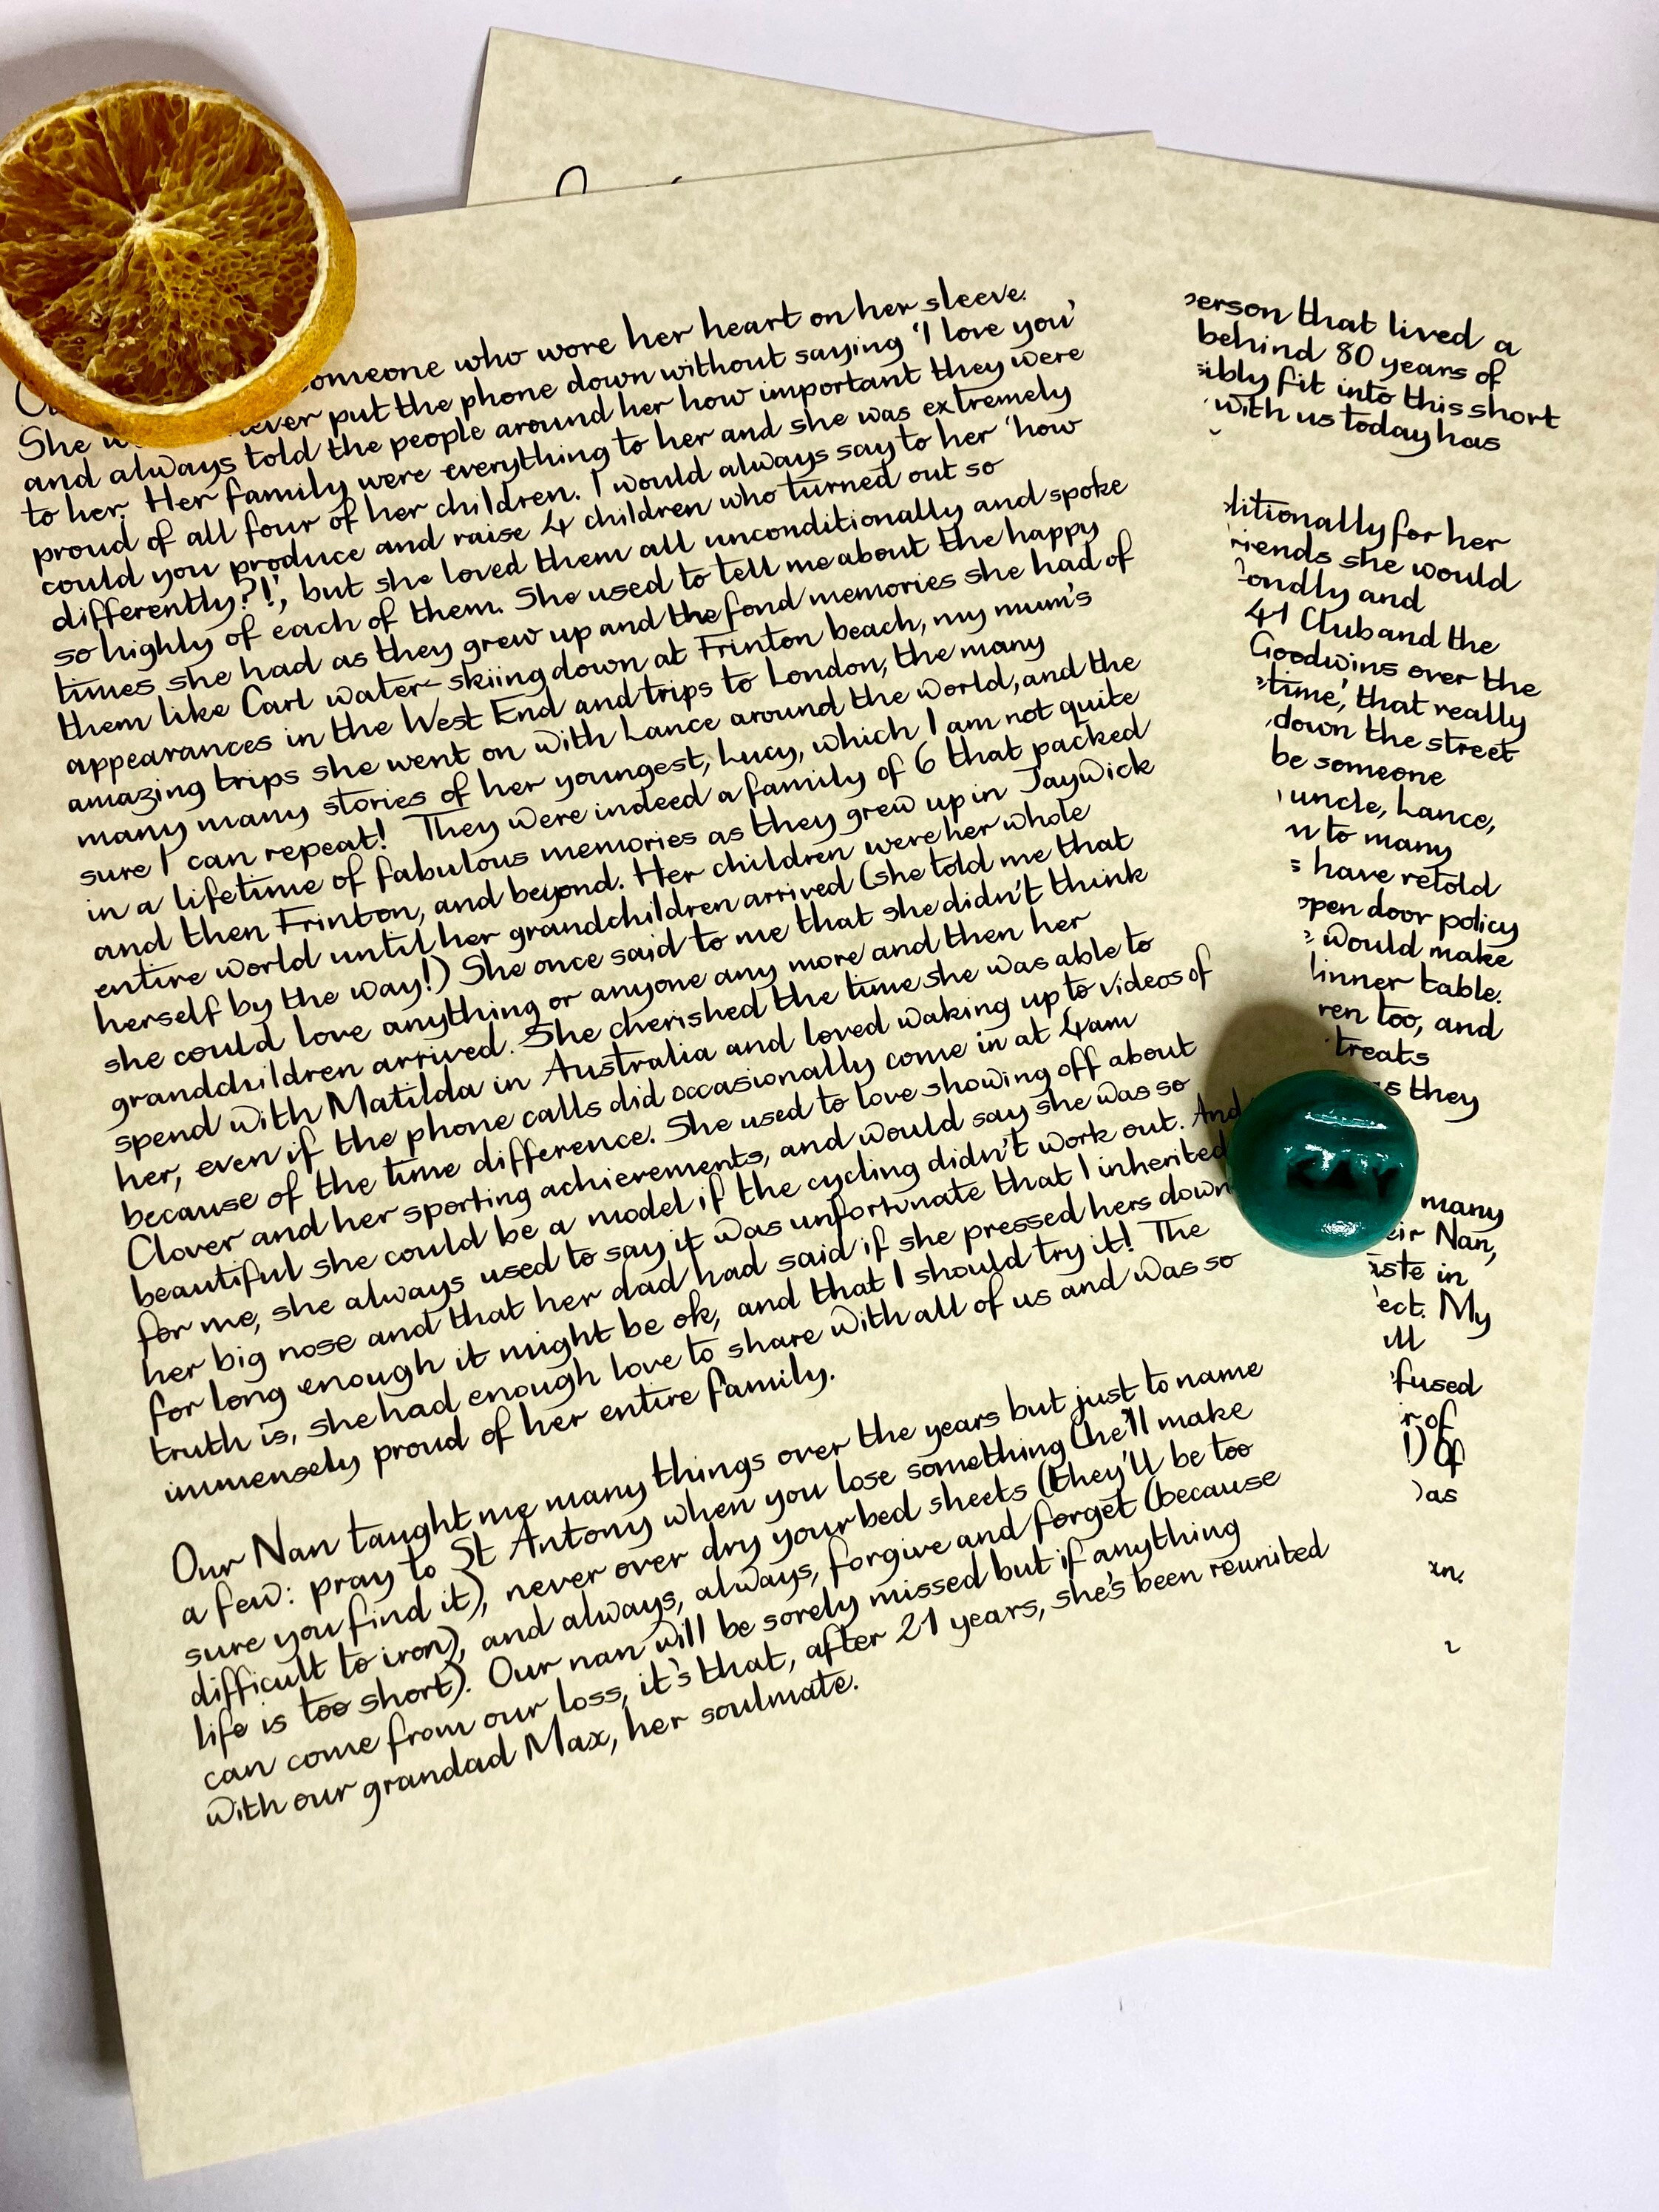 someone who wore her heart on her sleeve.
She never put the phone down without saying 'I love you'
and always told the people around her how important they were
to her. Her family were everything to her and she was extremely
proud of all four of her children. I would always say to her 'how
could you produce and raise 4 children who turned out so
differently?!', but she loved them all unconditionally and spoke
so highly of each of them. She used to tell me about the happy
times she had as they grew up and the fond memories she had of
them like Carl water-skiing down at Frinton beach, my mum's
appearances in the West End and trips to London, the many
amazing trips she went on with Lance around the world, and the
many many stories of her youngest, Lucy, which I am not quite
sure I can repeat! They were indeed a family of 6 that packed
in a lifetime of fabulous memories as they grew up in Jaywick
and then Frinton, and beyond. Her children were her whole
entire world until her grandchildren arrived (she told me that
herself by the way!) She once said to me that she didn't think
she could love anything or anyone any more and then her
grandchildren arrived. She cherished the time she was able to
spend with Matilda in Australia and loved waking up to videos of
her, even if the phone calls did occasionally come in at 4am
because of the time difference. She used to love showing off about
Clover and her sporting achievements, and would say she was so
beautiful she could be a model if the cycling didn't work out. And
for me, she always used to say it was unfortunate that I inherited
her big nose and that her dad had said if she pressed hers down
for long enough it might be ok, and that I should try it! The
truth is, she had enough love to share with all of us and was so
immensely proud of her entire family.
Our Nan taught me many things over the years but just to name
a few: pray to St Antony when you lose something (he'll make
sure you find it), never over dry your bed sheets (they'll be too
difficult to iron), and always, always, forgive and forget (because
life is too short). Our nan will be sorely missed but if anything
can come from our loss, it's that, after 21 years, she's been reunited
with our grandad Max, her soulmate.
erson that lived a
behind 80 years of
ibly fit into this short
with us today has
ditionally for her
riends she would
ondly and
41 Club and the
Goodwins over the
time', that really
down the street
be someone
uncle, Lance,
to many
have retold
open door policy
would make
dinner table.
ren too, and
treats
as they
KAY
many
eir Nan,
aste in
ect. My
ill
fused
of
as